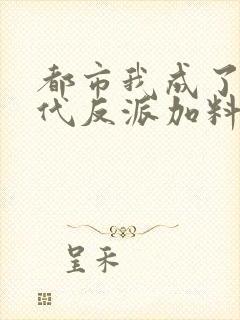 都市我成了
代反派加料
呈禾